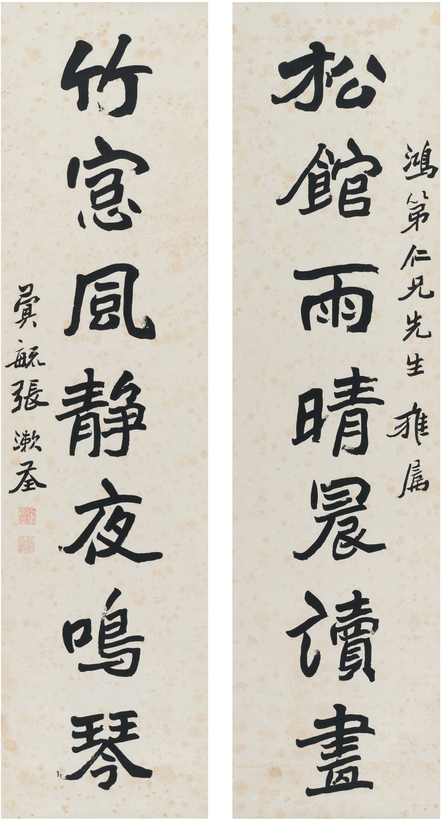 鴻第仁兄先生雅屬
松館雨晴晨讀畫
竹窓風靜夜鳴琴
張漱荃